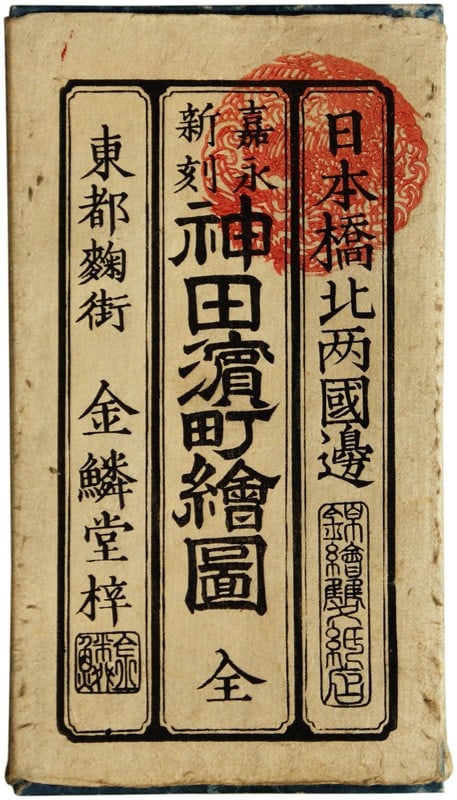 日本橋北两國邊
錦繪雙紙店
嘉永
新刻
神田濱町繪圖 全
東都麴街 金鱗堂梓